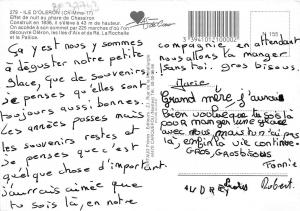 279 - ILE D'OLERON (CH-Mme-17)
Effet de nuit au phare de Chassiron
Construit en 1836, il s'élève à 43 m de hauteur.
On accède à son sommet par 225 marches d'où l'on
découvre Oléron, les Iles d'Aix et de Ré, La Rochelle
et le Palice.
Ça y est nous y sommes
à déguster notre petite
glace, que de souvenirs
je penses qu'elles sont
toujours aussi bonnes.
Les années passes mais
les souvenirs restes et
je penses que c'est
quelque chose d'important.
j'aurais aimée que
tu sois là, en notre
compagnie, en attendant
nous allons la manger
sans toi. gros bisous
3394101210002
Marie
Grand mère j'aurais
Bien voulue que tu sois là
pour manger une glace
avec nous mais tu n'ai pas
là, enfin la vie continue
GROS, GROS BISOUS
Fannie
Robert.